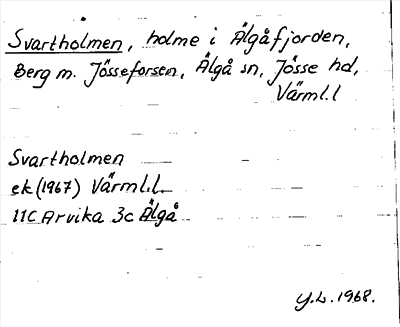 Svartholmen, holme i Älgåfjorden,
Berg m. Jösseforsen, Älgå sn, Jösse hd,
Värml.l
Svartholmen
ek (1967) Värml.l.
11C Arvika 3c Älgå
Y.L. 1968.